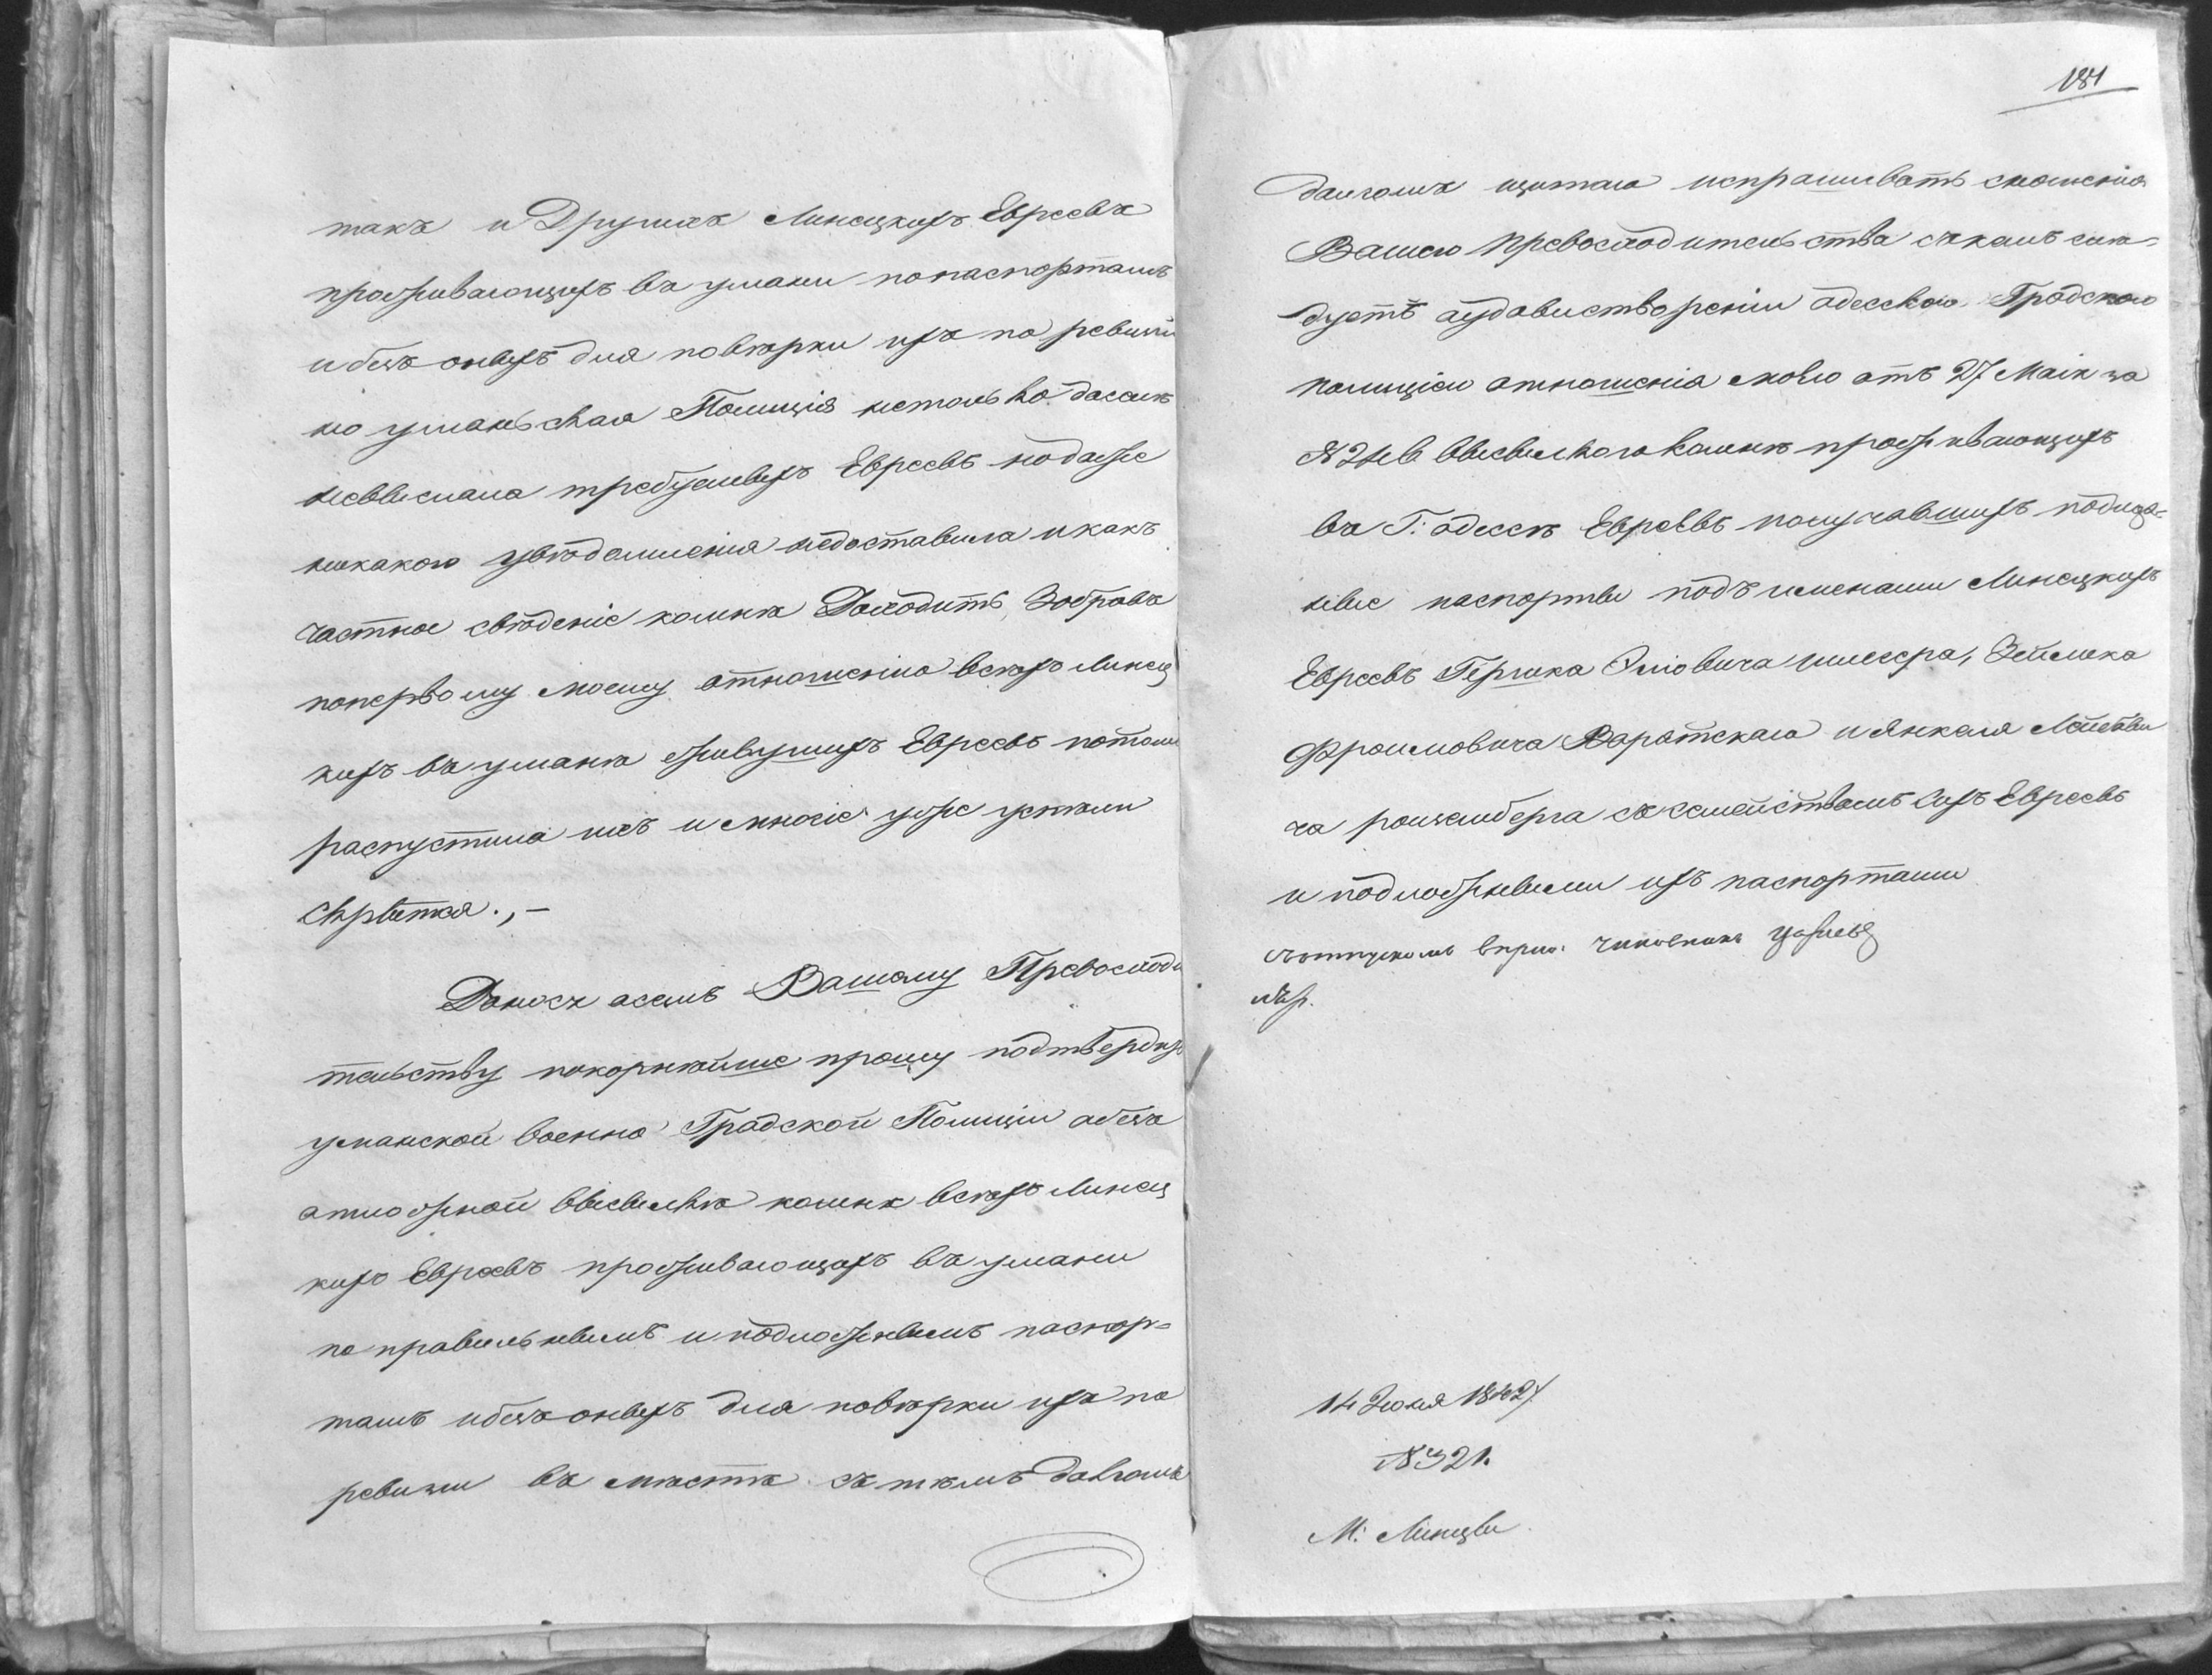 такъ и Другихъ Линецкихъ Евреевъ
проживающихъ въ умани попаспортамъ
и безъ оныхъ для повѣрки ихъ по ревизіи
но уманьская Полиція нетолько доселѣ
невыслала требуемыхъ Евреевъ но даже
никакого увѣдомленія недоставила и какъ
частное свѣденіе комнѣ Доходитъ, Зобравъ
попервому моему отношенію всѣхъ Линец
кихъ въ уманѣ живущихъ Евреевъ потомъ
распустила ихъ и многіе уже успѣли
скрытся.,—
Донося осемъ Вашему Превосходи
тельству покорнѣйше прошу подтвердить
уманской военно Градской Полиціи обезъ
отложной высылкѣ комнѣ всѣхъ Линец
кихъ Евреевъ проживающихъ въ умани
по правильнымъ и подложнымъ паспор=
тамъ и безъ оныхъ для повѣрки ихъ по
ревизіи въ мѣстѣ съ тѣмъ долгомъ
181
долгомъ щитаю испрашивать сношенія
Вашего Превосходительства съ кемъ слѣ=
дуетъ оудовлетвореніи одесскою Градскою
полиціею отношенія моего отъ 27 Маія за
№ 246 высылкою комнѣ проживающихъ
въ Г: одессѣ Евреевъ получавшихъ подлож=
ные паспорты подъ именами Линецкихъ
Евреевъ Гершка Эліовича шлегера, Зейлика
Фроимовича Воратскаго и Янкеля
ча розенберга съ семействомъ сихъ Евреевъ
и подложными ихъ паспортами
чиновникъ
14 Іюня 1842 г.
№ 321.
М: Линцы